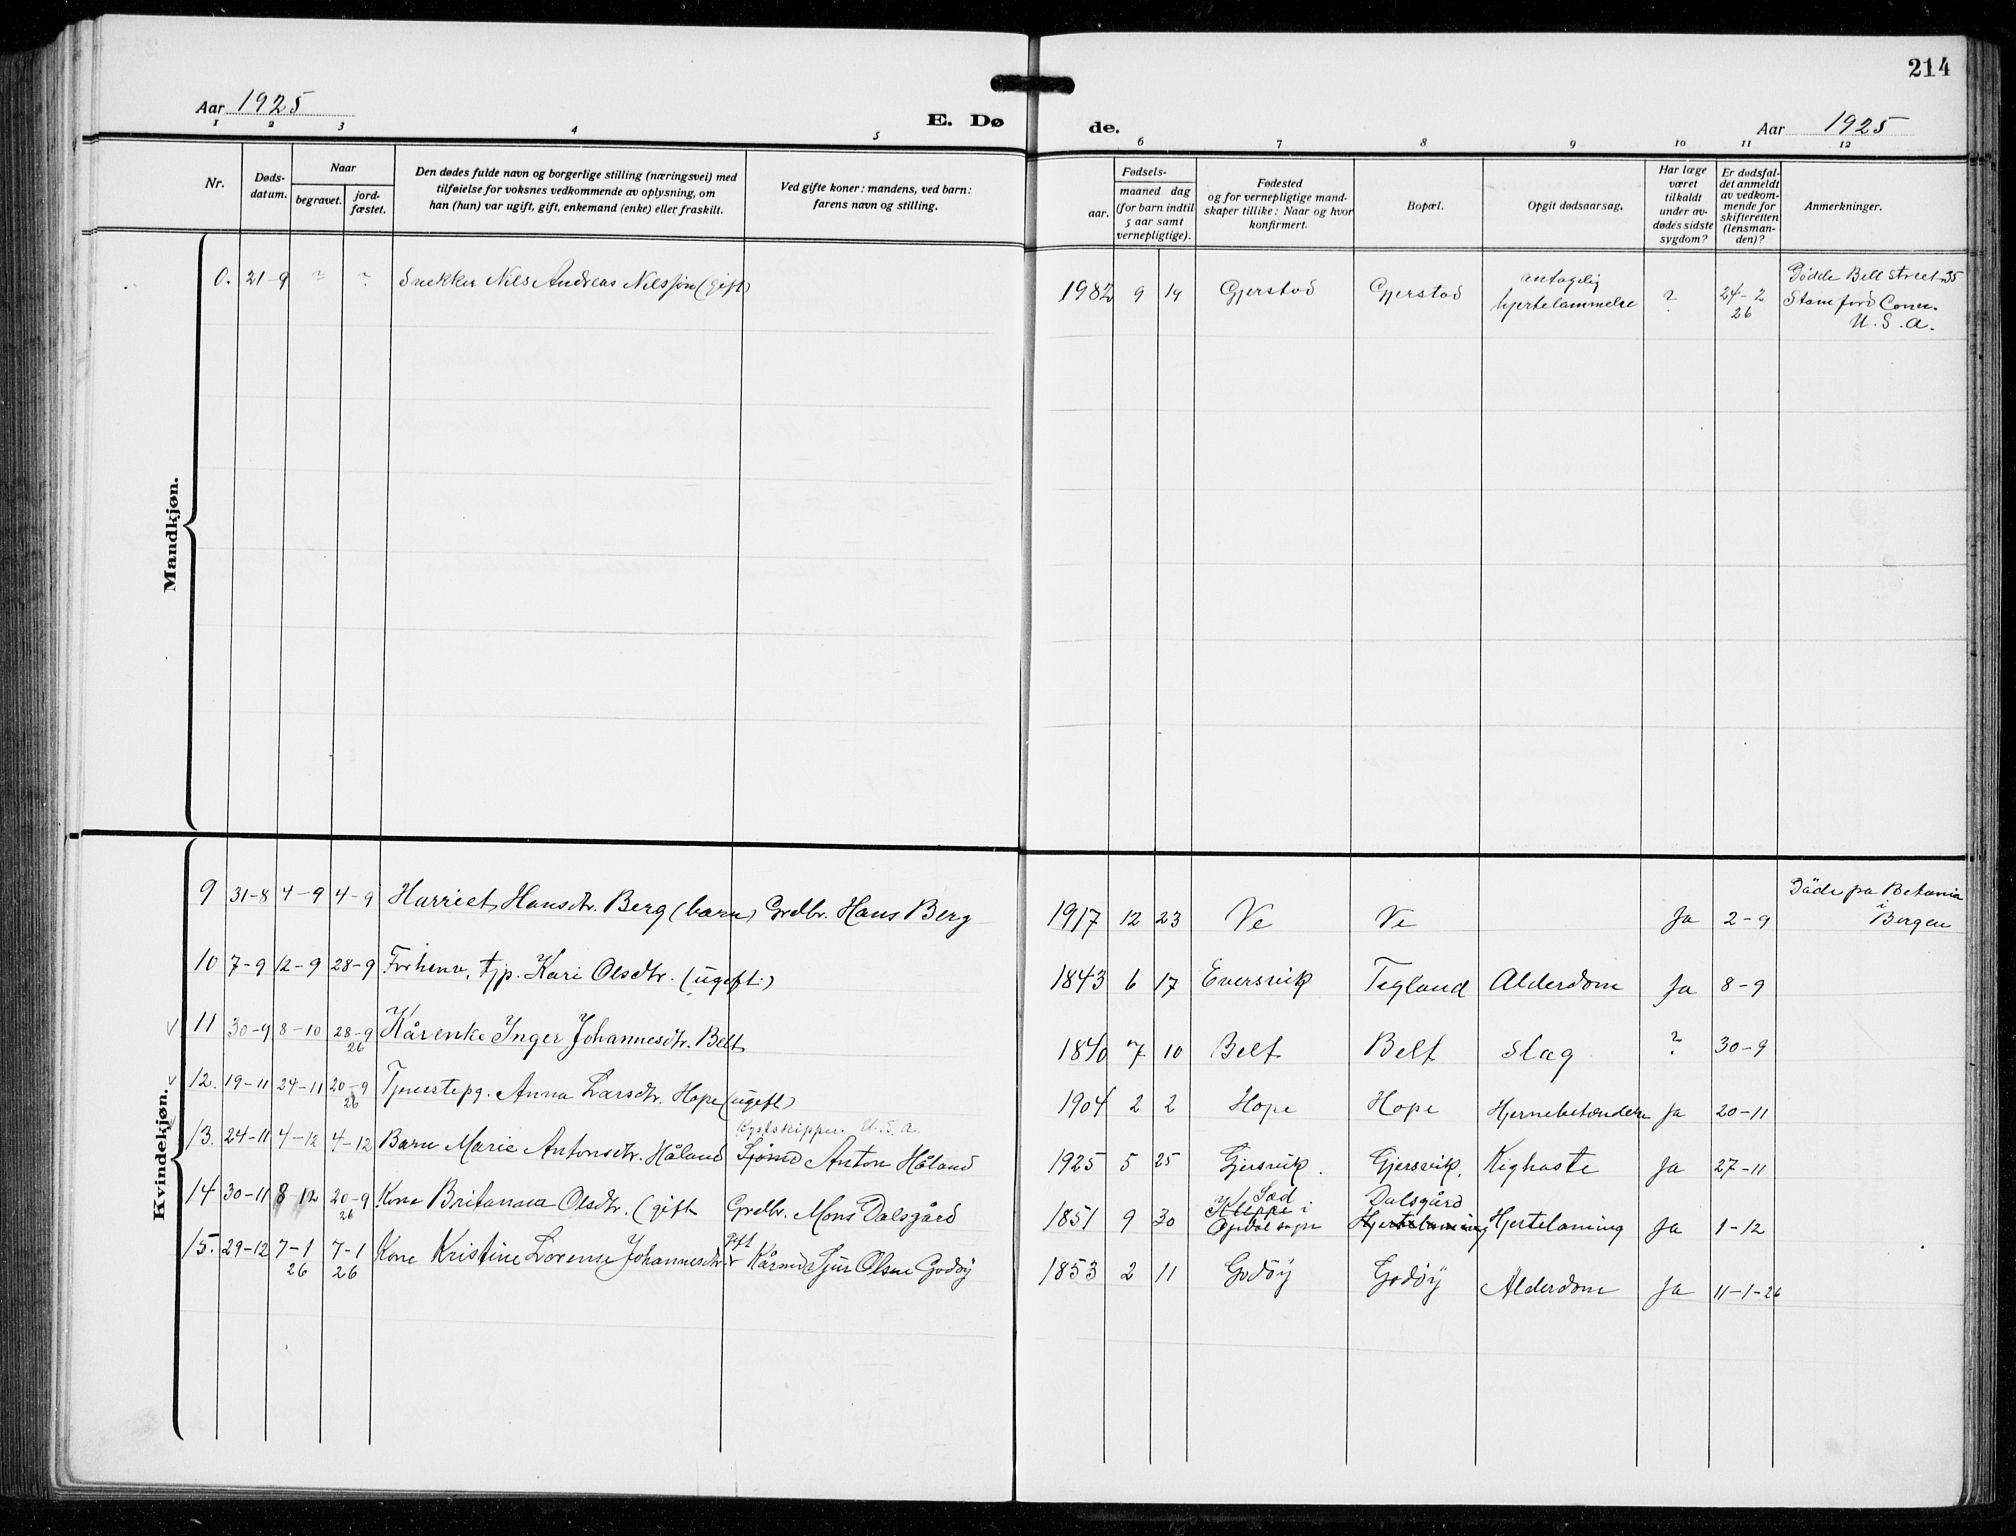 214
Aar 1925
E. Dø de.
Aar 1925
1 2 3 4 5 6 7 8 9 10 11 12
Nr.
Døds-
datum.
Naar
begravet.
jord-
fæstet.
Den dødes fulde navn og borgerlige stilling (næringsvei) med
tilføielse for voksnes vedkommende av oplysning, om
han (hun) var ugift, gift, enkemand (enke) eller fraskilt.
Ved gifte koner: mandens, ved barn:
farens navn og stilling.
Fødsels-
aar.
maaned dag
(for barn indtil
5 aar samt
vernepligtige).
Fødested
og for vernepligtige mand-
skaper tillike: Naar og hvor
konfirmert.
Bopæl.
Opgit dødsaarsag.
Har læge
været
tilkaldt
under av-
dødes sidste
sygdom?
Er dødsfal-
det anmeldt
av vedkom-
mende for
skifteretten
(lensman-
den)?
Anmerkninger.
Mandkjøn.
0. 21-9 ? ? Snekker Nils Andreas Nilssøn (gift) 1982 9 14 Gjerstad Gjerstad antagelig hjertelammelse ? 24-2 26 Dödde Bell Street 35
Stamford Conn.
U. S. A.
Kvindekjøn.
9 31-8 4-9 4-9 Harriet Hansdtr. Berg (barn) Grdbr. Hans Berg 1917 12 23 Ve Ve Ja 2-9 Döde pa Betania
i
Bergen
10 7-9 12-9 28-9 Forhenv. tjp. Kari Olsdtr. (ugift) 1843 6 17 Eversvik Tegland Alderdom Ja 8-9
11 30-9 8-10 28-9 26 Kårenke Inger Johannesdtr. Belt 1840 7 10 Belt Belt Slag ? 30-9
12. 19-11 24-11 20-9 26 Tjenestepg. Anna Larsdtr. Hope (ugift) 1904 2 2 Hope Hope Hjernebetendelse Ja 20-11
Kystskipper U.S.A.
13. 24-11 4-12 4-12 Barn Marie Antonsdtr. Håland Sjömd Anton Håland 1925 5 25 Gjersvik. Gjersvik. Kighoste Ja 27-11
14 30-11 8-12 20-9 26 Kone Britanna Olsdtr. (gift Grdbr. Mons Dalsgård 1851 9 30 Kleppe i Opdal sogn Dalsgård Hjertelaming Hjertelaming Ja 1-12
15. 29-12 7-1 26 7-1 26 Kone Kristine Lorense Johannesdtr gift Kårmd Sjur Olsen Godøy 1853 2 11 Godöy Godöy Alderdom Ja 11-1-26